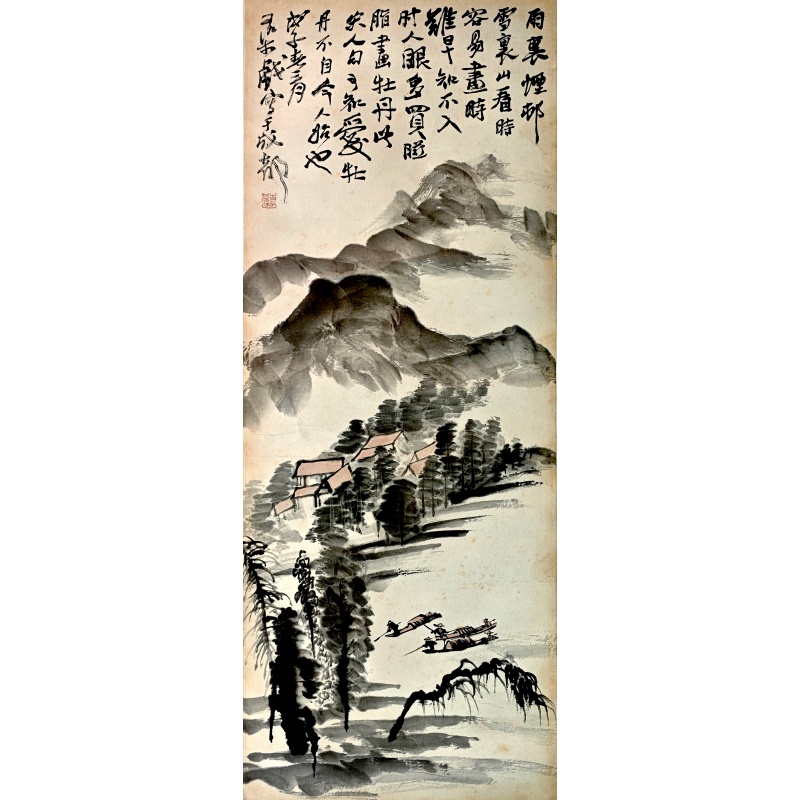 雨裏煙邨
雪裏山看時
容易畫時
難早知不入
時人眼多買臙
脂畫牡丹此
宋人句可知愛牡
丹不自今人始也
戊子春三月
戲寫于故都